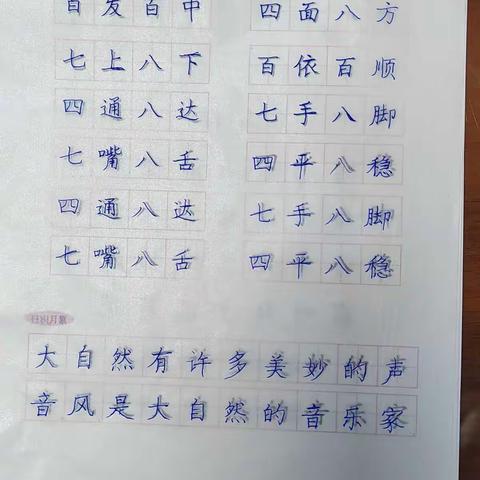 百发百中 四面八方
七上八下 百依百顺
四通八达 七手八脚
七嘴八舌 四平八稳
四通八达 七手八脚
七嘴八舌 四平八稳
日积月累
大自然有许多美妙的声
音风是大自然的音乐家